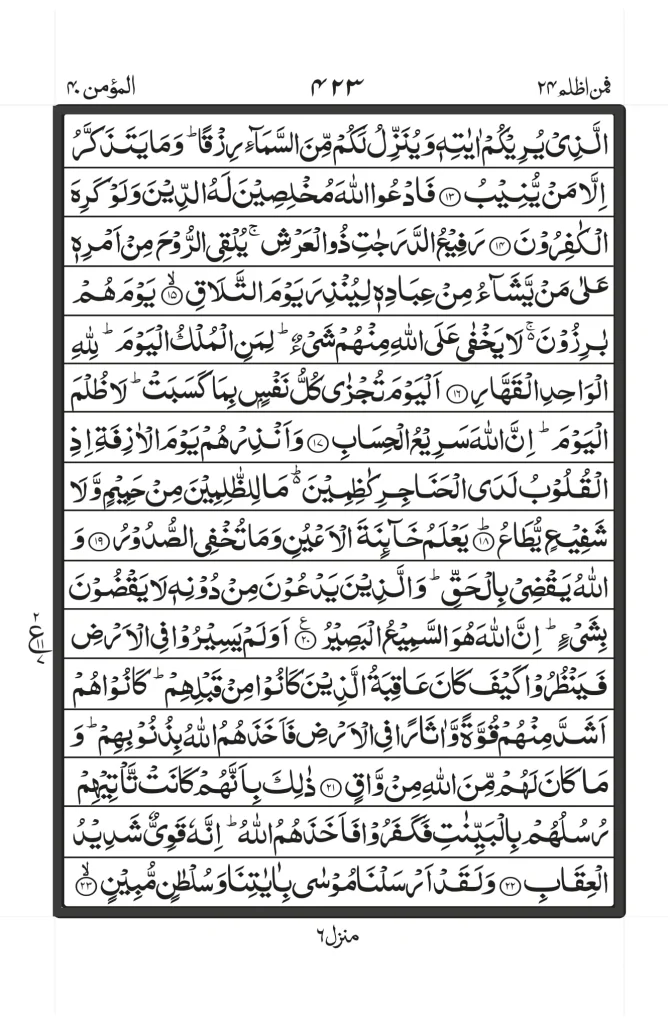 فمن اظلم ٢٤ ٤٢٣ المؤمن ٤٠
الَّذِىْ يُرِيْكُمْ اٰيٰتِهٖ وَيُنَزِّلُ لَكُمْ مِّنَ السَّمَآءِ رِزْقًا ؕ وَمَا يَتَذَكَّرُ
اِلَّا مَنْ يُّنِيْبُ ﴿١٣﴾ فَادْعُوا اللّٰهَ مُخْلِصِيْنَ لَهُ الدِّيْنَ وَلَوْ كَرِهَ
الْكٰفِرُوْنَ ﴿١٤﴾ رَفِيْعُ الدَّرَجٰتِ ذُو الْعَرْشِ ۚ يُلْقِى الرُّوْحَ مِنْ اَمْرِهٖ
عَلٰى مَنْ يَّشَآءُ مِنْ عِبَادِهٖ لِيُنْذِرَ يَوْمَ التَّلَاقِ ﴿١٥﴾ۙ يَوْمَ هُمْ
بٰرِزُوْنَ ۚ۬ لَا يَخْفٰى عَلَى اللّٰهِ مِنْهُمْ شَىْءٌ ؕ لِمَنِ الْمُلْكُ الْيَوْمَ ؕ لِلّٰهِ
الْوَاحِدِ الْقَهَّارِ ﴿١٦﴾ اَلْيَوْمَ تُجْزٰى كُلُّ نَفْسٍۭ بِمَا كَسَبَتْ ؕ لَا ظُلْمَ
الْيَوْمَ ؕ اِنَّ اللّٰهَ سَرِيْعُ الْحِسَابِ ﴿١٧﴾ وَاَنْذِرْهُمْ يَوْمَ الْاٰزِفَةِ اِذِ
الْقُلُوْبُ لَدَى الْحَنَاجِرِ كٰظِمِيْنَ ؕ۬ مَا لِلظّٰلِمِيْنَ مِنْ حَمِيْمٍ وَّلَا
شَفِيْعٍ يُّطَاعُ ﴿١٨﴾ؕ يَعْلَمُ خَآئِنَةَ الْاَعْيُنِ وَمَا تُخْفِى الصُّدُوْرُ ﴿١٩﴾ وَ
اللّٰهُ يَقْضِىْ بِالْحَقِّ ؕ وَالَّذِيْنَ يَدْعُوْنَ مِنْ دُوْنِهٖ لَا يَقْضُوْنَ
بِشَىْءٍ ؕ اِنَّ اللّٰهَ هُوَ السَّمِيْعُ الْبَصِيْرُ ﴿٢٠﴾ اَوَلَمْ يَسِيْرُوْا فِى الْاَرْضِ ٢ ع ١١ ٧
فَيَنْظُرُوْا كَيْفَ كَانَ عَاقِبَةُ الَّذِيْنَ كَانُوْا مِنْ قَبْلِهِمْ ؕ كَانُوْا هُمْ
اَشَدَّ مِنْهُمْ قُوَّةً وَّاٰثَارًا فِى الْاَرْضِ فَاَخَذَهُمُ اللّٰهُ بِذُنُوْبِهِمْ ؕ وَ
مَا كَانَ لَهُمْ مِّنَ اللّٰهِ مِنْ وَّاقٍ ﴿٢١﴾ ذٰلِكَ بِاَنَّهُمْ كَانَتْ تَّاْتِيْهِمْ
رُسُلُهُمْ بِالْبَيِّنٰتِ فَكَفَرُوْا فَاَخَذَهُمُ اللّٰهُ ؕ اِنَّهٗ قَوِىٌّ شَدِيْدُ
الْعِقَابِ ﴿٢٢﴾ وَلَقَدْ اَرْسَلْنَا مُوْسٰى بِاٰيٰتِنَا وَسُلْطٰنٍ مُّبِيْنٍ ﴿٢٣﴾ۙ
منزل ٦